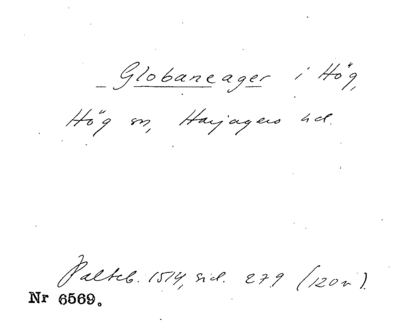 Globaneager i Hög,
Hög sn, Harjagers hd.
Palteb. 1514, sid. 279 (120v).
Nr 6569.